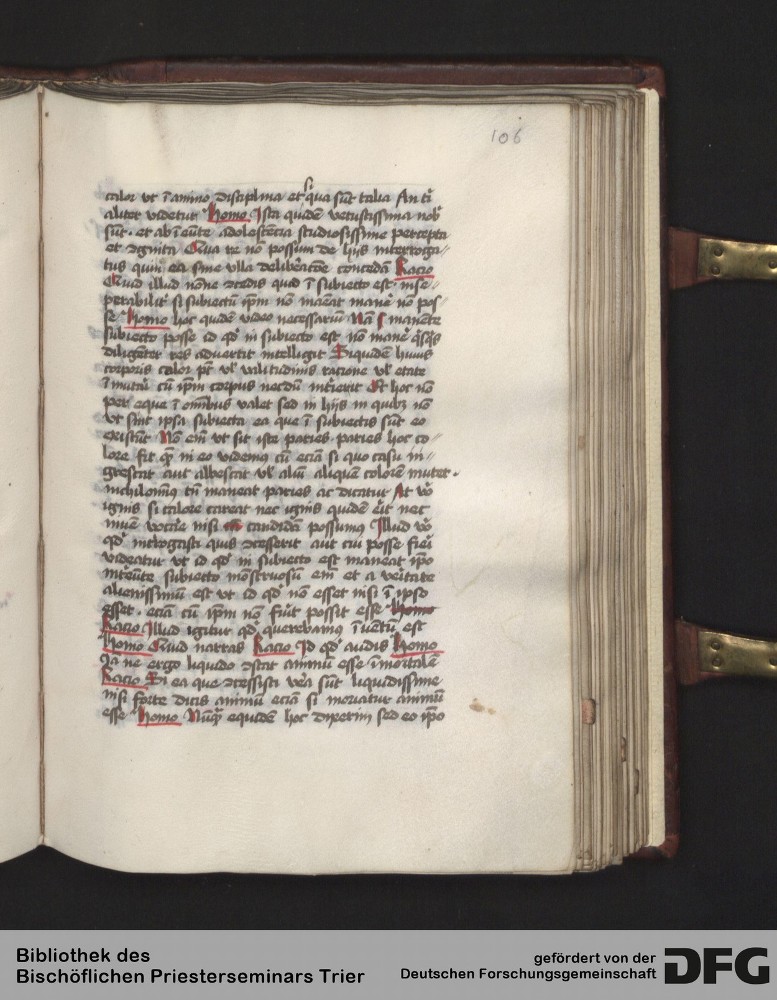 106
calor ut ī animo disciplina et qua sūt talia An tͥ
aliter videtur Homo Ista quidē vetustissima nobͥ
sūt · et ab īeūte adolescēcia studiosissime percepta
et ɔgnita Qua re nō possum de hijs interroga
tus quin ea sine ulla deliberacōe concedā Racio
Quid illud nōne ɔcedis quod ī subiecto est · inse
perabilit̄ si subiectū ip̄m nō maneat manē nō pos
se Homo hoc quidē video necessariū Nā manēte
subiecto posse id qd̓ in subiecto est nō manē
diligēter res advertit intelligit Siquidem huius
corporis calor p̄t vl̓ valitudinis racione vl̓ etate
ī mutari cū ip̄m corpus necdū int̓ierit At hoc nō
per eque ī omībus valet sed in hijs in quibꝫ nō
ut sint ipsa subiecta ea que ī subiectis sūt eo
existūt Nō em̄ ut sit iste paries · paries hoc co
lore fit quē in eo videmus cū eciā si quo casu ni
grescat aut albescat vl̓ aliū aliquē colorē mutet ·
nichilominꝰ tn̄ maneat paries ac dicatur At vͦo
ignis si calore careat nec ignis quidē erit nec
nivē vocare nisi candidā possumꝰ Illud vͦo
qd̓ int̓rogasti quis ɔcesserit aut cui posse fieri
videatur ut id qd̓ in subiecto est maneat ip̄o
int̓eūte subiecto mōstruosū em̄ et a veritate
alienissimū est ut id qd̓ nō esset nisi ī ipso
esset · eciā cū ip̄m nō fuerit possit esse Homo
Racio Illud igitur qd̓ querebamꝰ īventū est
Homo Quid narras Racio Id qd̓ audis Homo
Ia ne ergo liquido ɔstat animū esse īmortalē
Racio Si ea que ɔcessisti vera sūt liquidissime
nisi forte dicis animū eciā si moriatur animū
esse Homo Nūq̄ equidē hoc dixerim sed eo ip̄o
Bibliothek des
Bischöflichen Priesterseminars Trier
gefördert von der
Deutschen Forschungsgemeinschaft
DFG